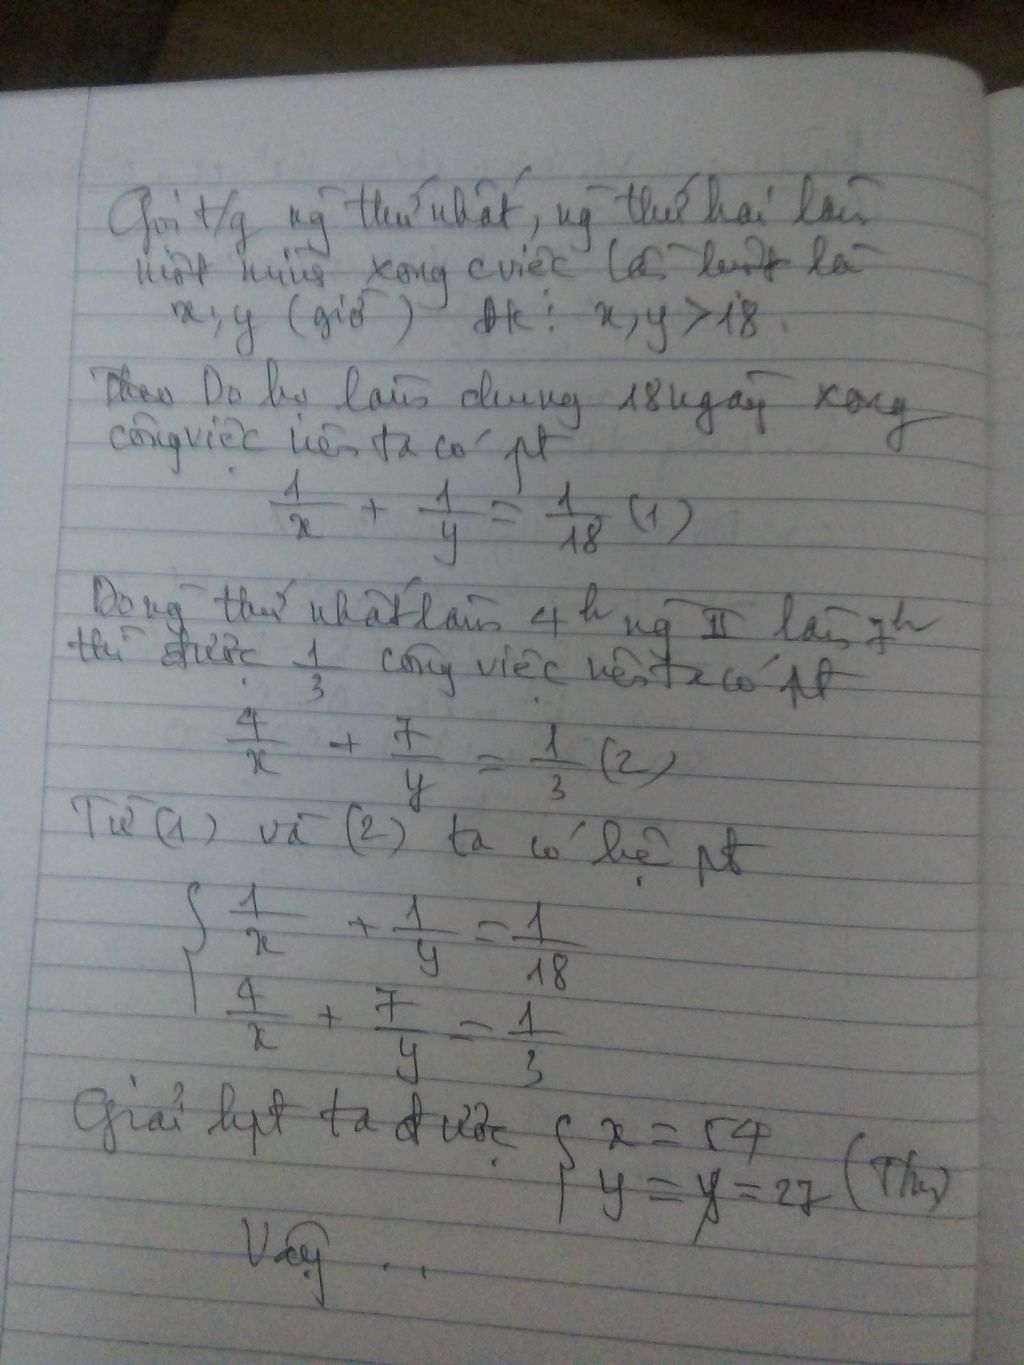 Gọi t/g ng thứ nhất, ng thứ hai làm
một mình xong cviệc lần lượt là
x, y (giờ) đk: x, y > 18.
Theo Do họ làm chung 18 ngày xong
công việc nên ta có pt
1/x + 1/y = 1/18 (1)
Do ng thứ nhất làm 4h ng II làm 7h
thì được 1/3 công việc nên ta có pt
4/x + 7/y = 1/3 (2)
Từ (1) và (2) ta có hệ pt
{ 1/x + 1/y = 1/18
4/x + 7/y = 1/3
Giải hpt ta được { x = 54
y = y = 27 (Tm)
Vậy ...